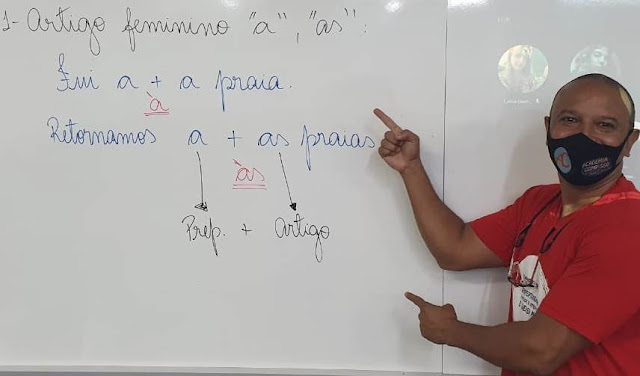 1- Artigo feminino "a", "as":
Fui a + a praia.
à
Retornamos a + as praias
às
Prep. + Artigo
ACADEMIA